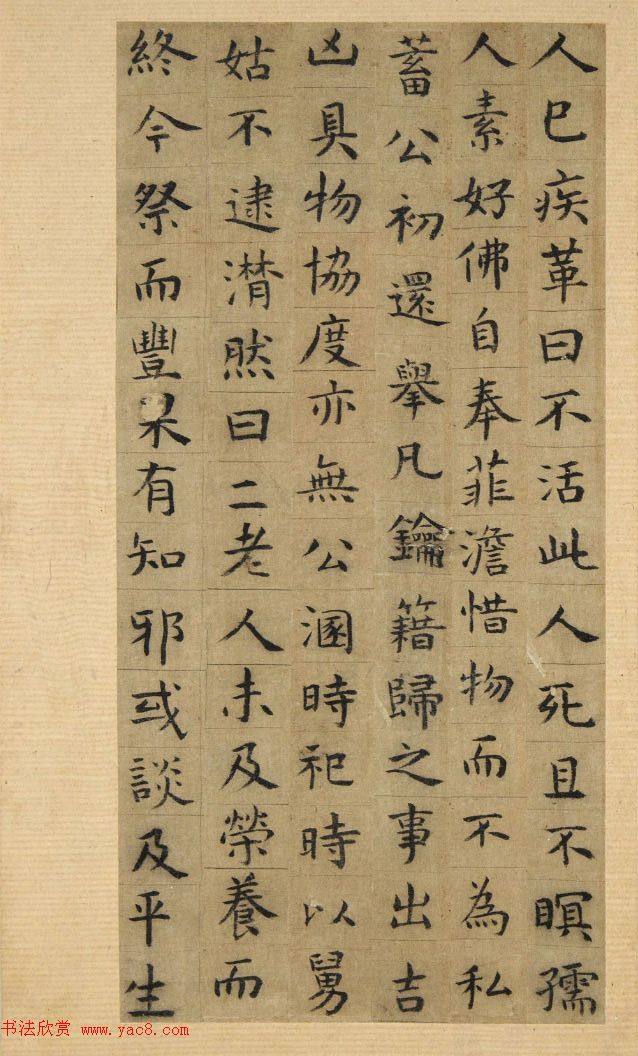 人已疾革曰不活此人死且不瞑孺
人素好佛自奉菲澹惜物而不為私
蓄公初還舉凡鑰籍歸之事出吉
凶具物協度亦無公溷時祀時以舅
姑不逮潸然曰二老人未及榮養而
終今祭而豐果有知邪或談及平生
书法欣赏 www.yac8.com